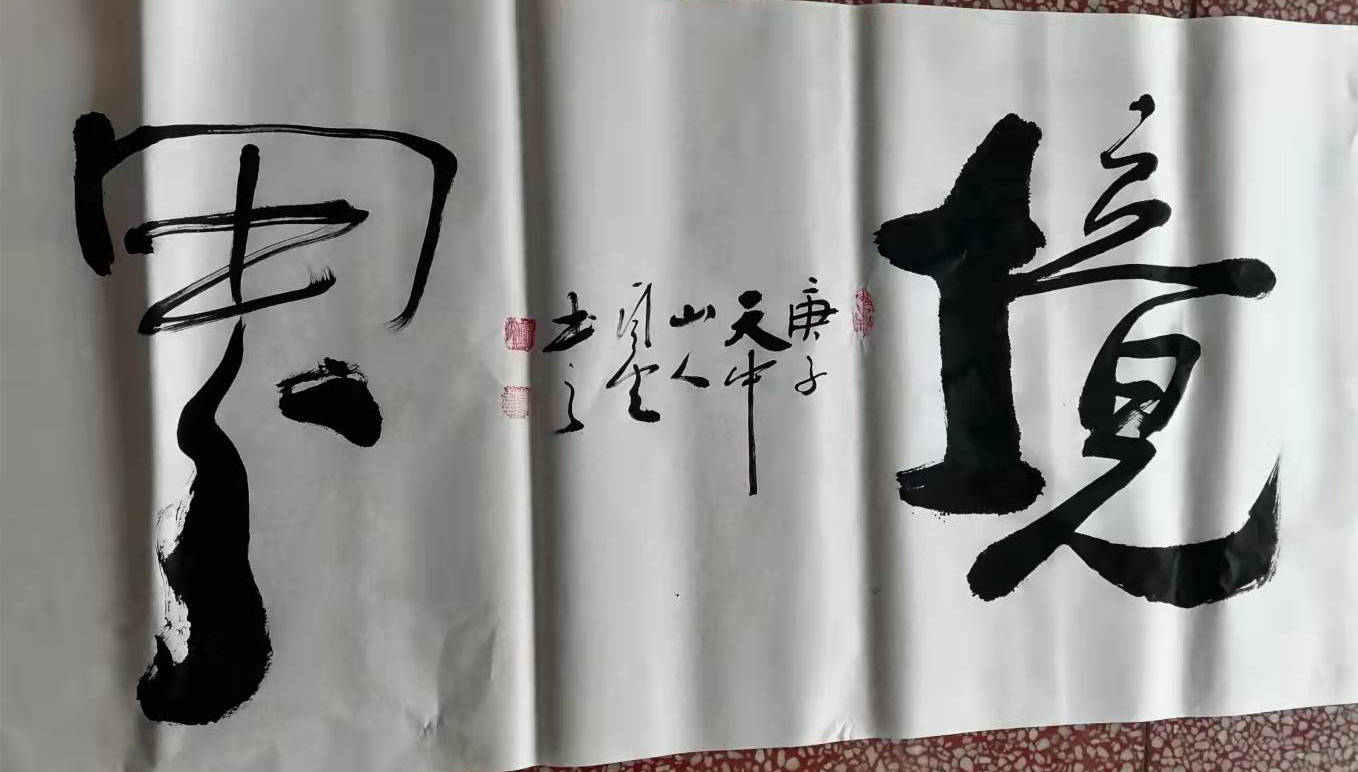 境界
庚子
天中
山人
书之